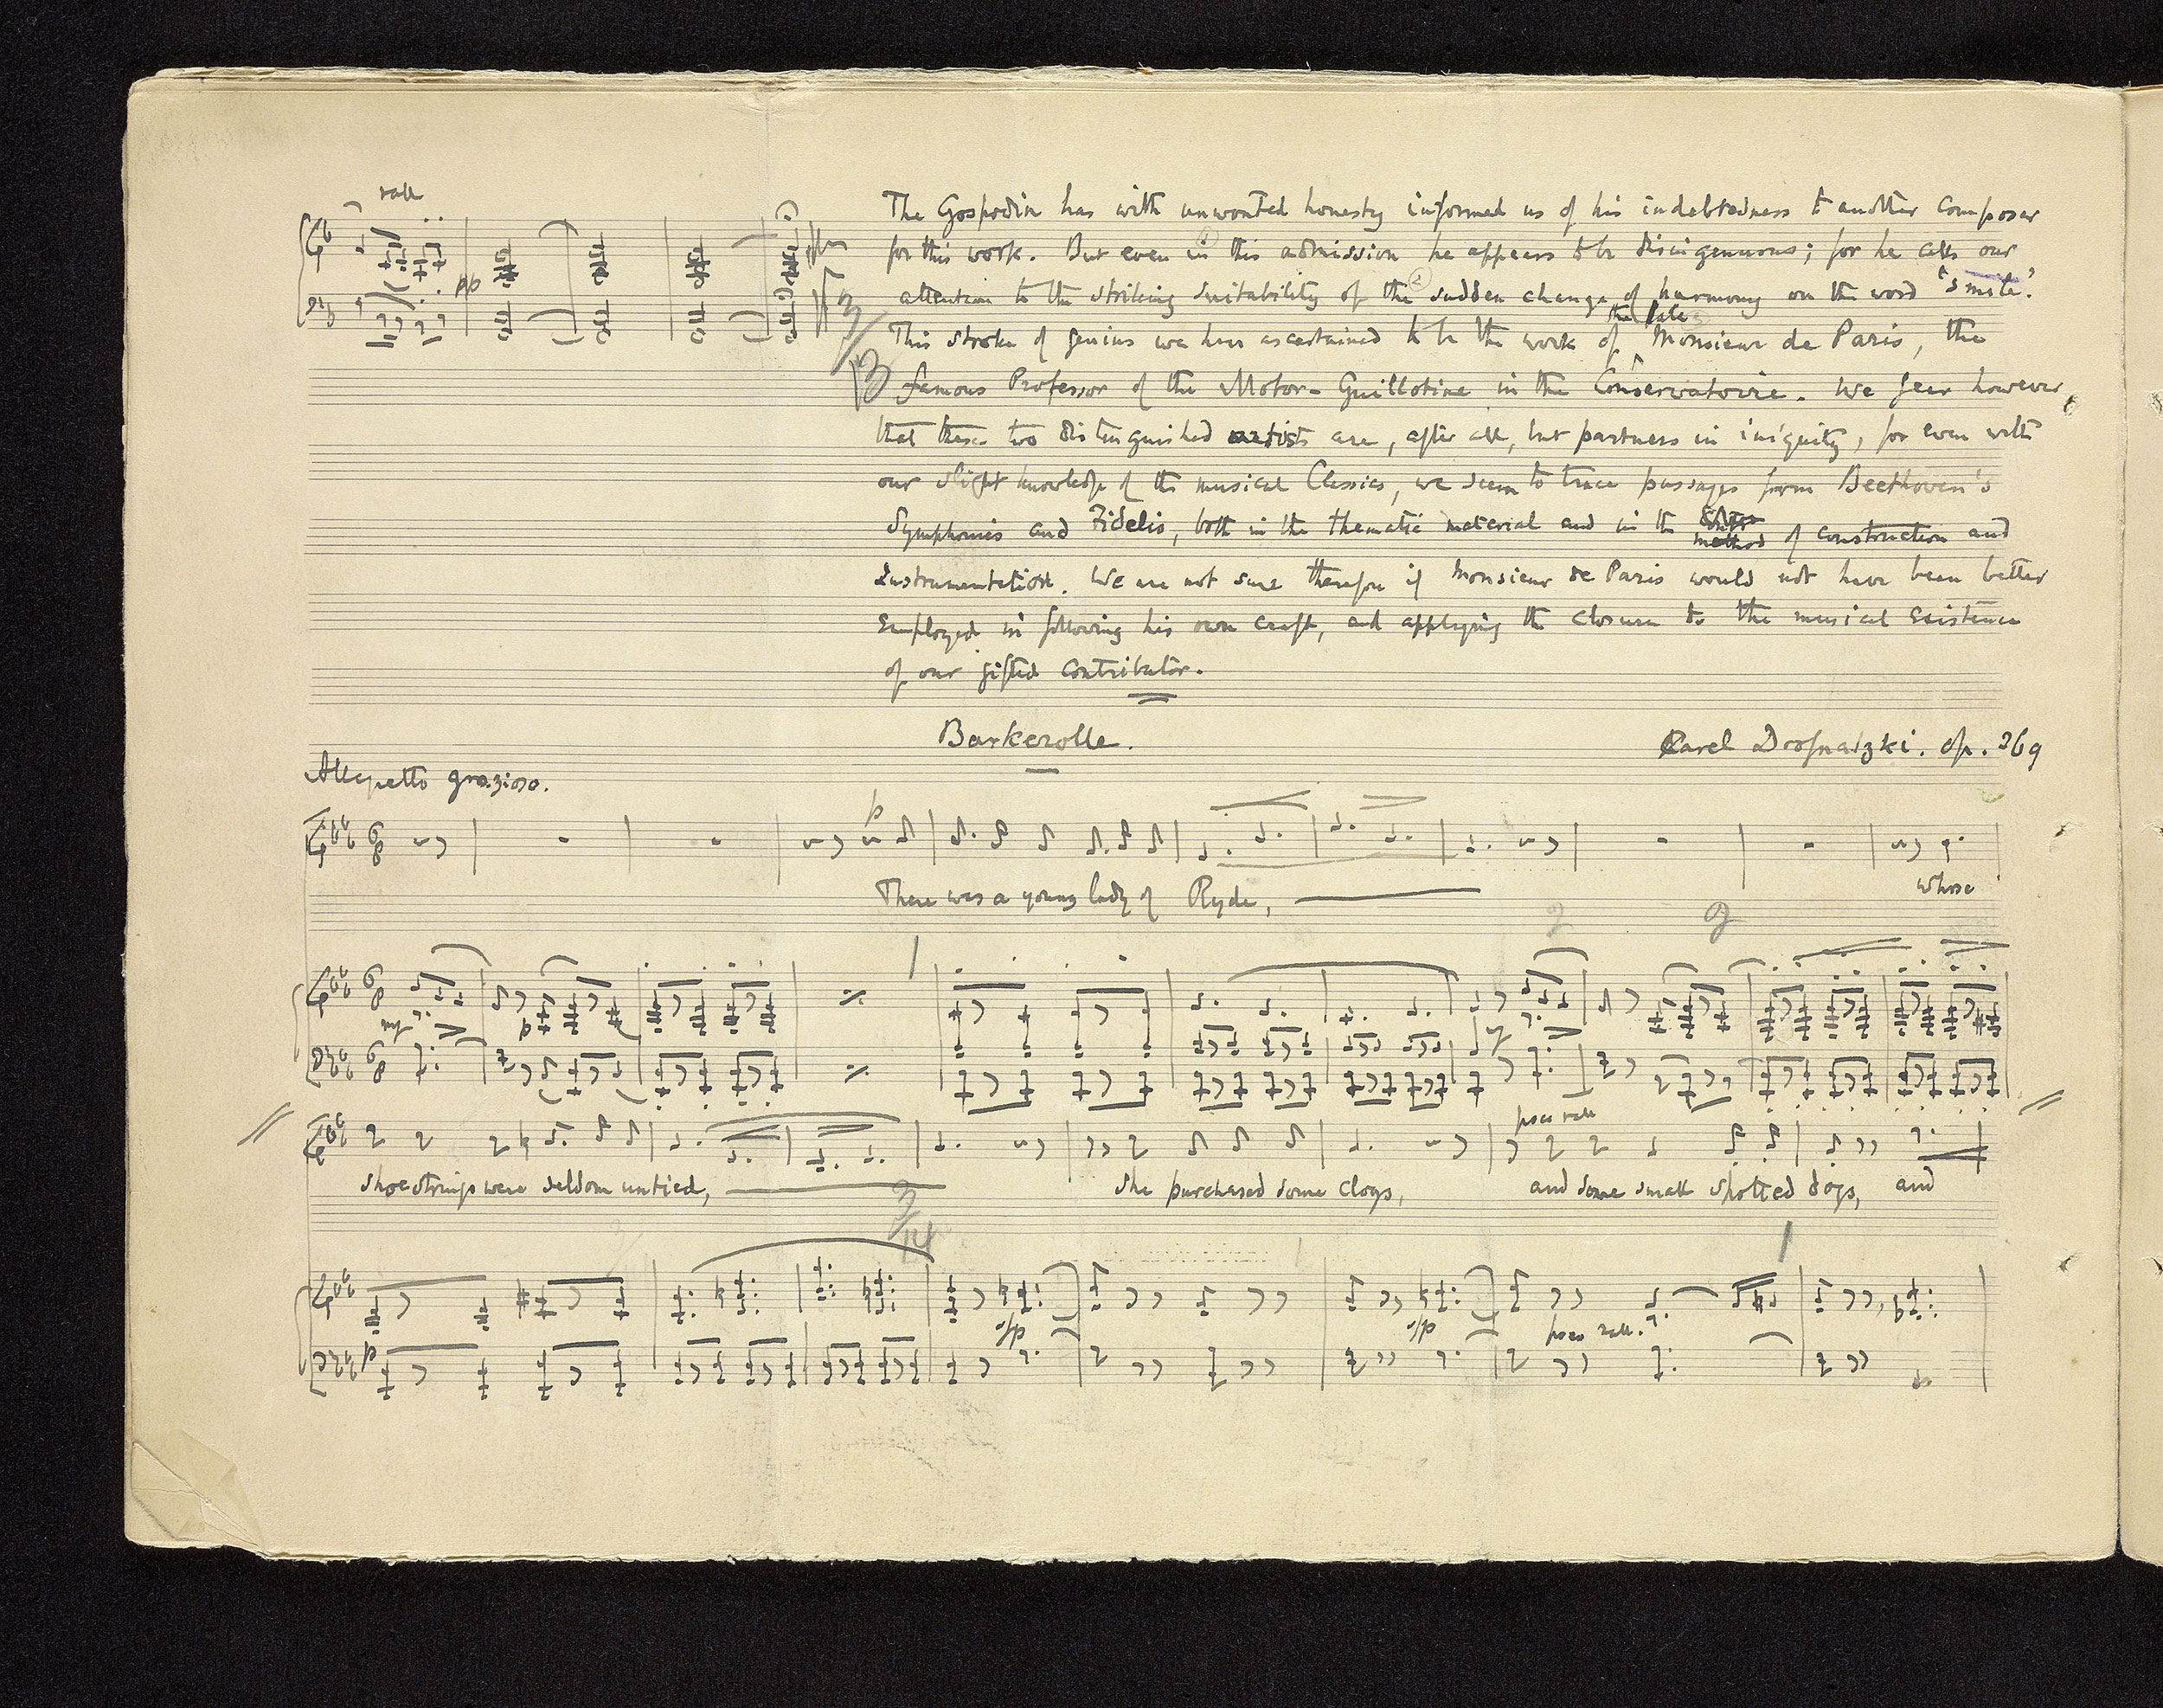 rall
pp
The Gospodin has with unwonted honesty informed us of his indebtedness to another Composer
for this work. But even in this admission he appears to be disingenuous; for he calls our
attention to the striking suitability of the sudden change of harmony on the word "smile".
the late
This stroke of genius we have ascertained to be the work of Monsieur de Paris, the
famous Professor of the Motor-Guillotine in the Conservatoire. We fear however
that these two distinguished artists are, after all, but partners in iniquity, for even with
our slight knowledge of the musical Classics, we seem to trace passages from Beethoven's
Symphonies and Fidelio, both in the thematic material and in the method of construction and
Instrumentation. We are not sure therefore if Monsieur de Paris would not have been better
Employed in following his own craft, and applying the closure to the musical Existence
of our gifted Contributor.
Barkerolle.
Karel Drofnatzki. Op. 369
Allegretto grazioso.
p
There was a young lady of Ryde, whose
mf
poco rall
shoe strings were seldom untied, she purchased some clogs, and some small spotted dogs, and
sfp sfp poco rall.
p